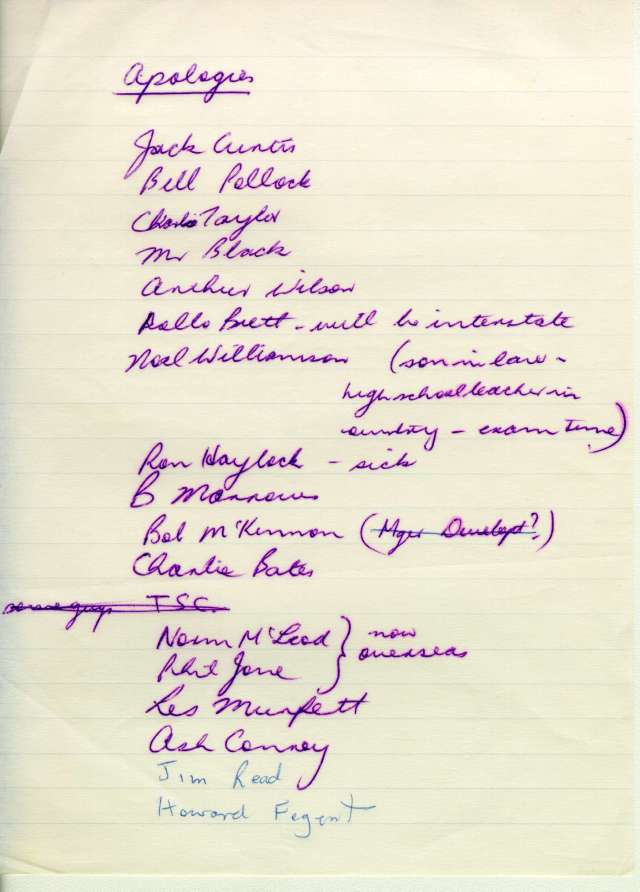 Apologies
Jack Curtis
Bill Pollock
Charlie Taylor
Mr Black
Arthur Wilson
Rollo Brett - will be interstate
Noel Williamson (son in law -
high school teacher in
country - exam time)
Ron Haylock - sick
B Morrows
Bob McKinnon (Mger Develept?)
Charlie Bates
some guys TSC.
Norm McLeod } now
Phil Jone } overseas
Les Murfett
Ash Conroy
Jim Read
Howard Fegent